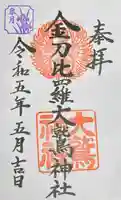 奉拝
金刀比羅大鷲神社
令和五年五月吉日
大鷲神社